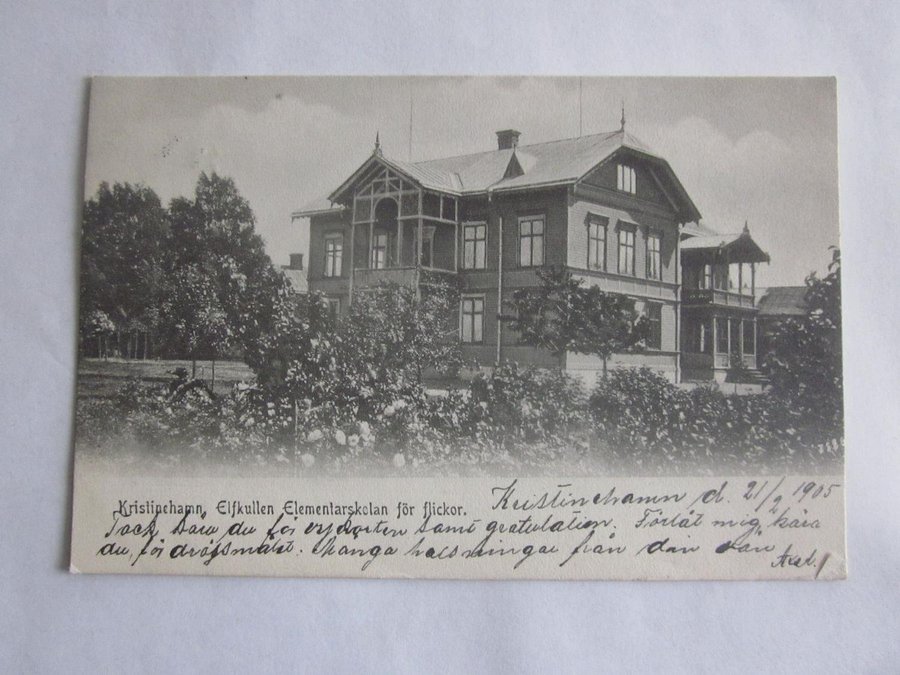 Kristinehamn. Elfkullen Elementarskolan för flickor.
Kristinehamn d. 21/2 1905
Tack kära du för vykorten samt gratulation. Förlåt mig, kära
du, för dröjsmålet. Många halsningar från din vän